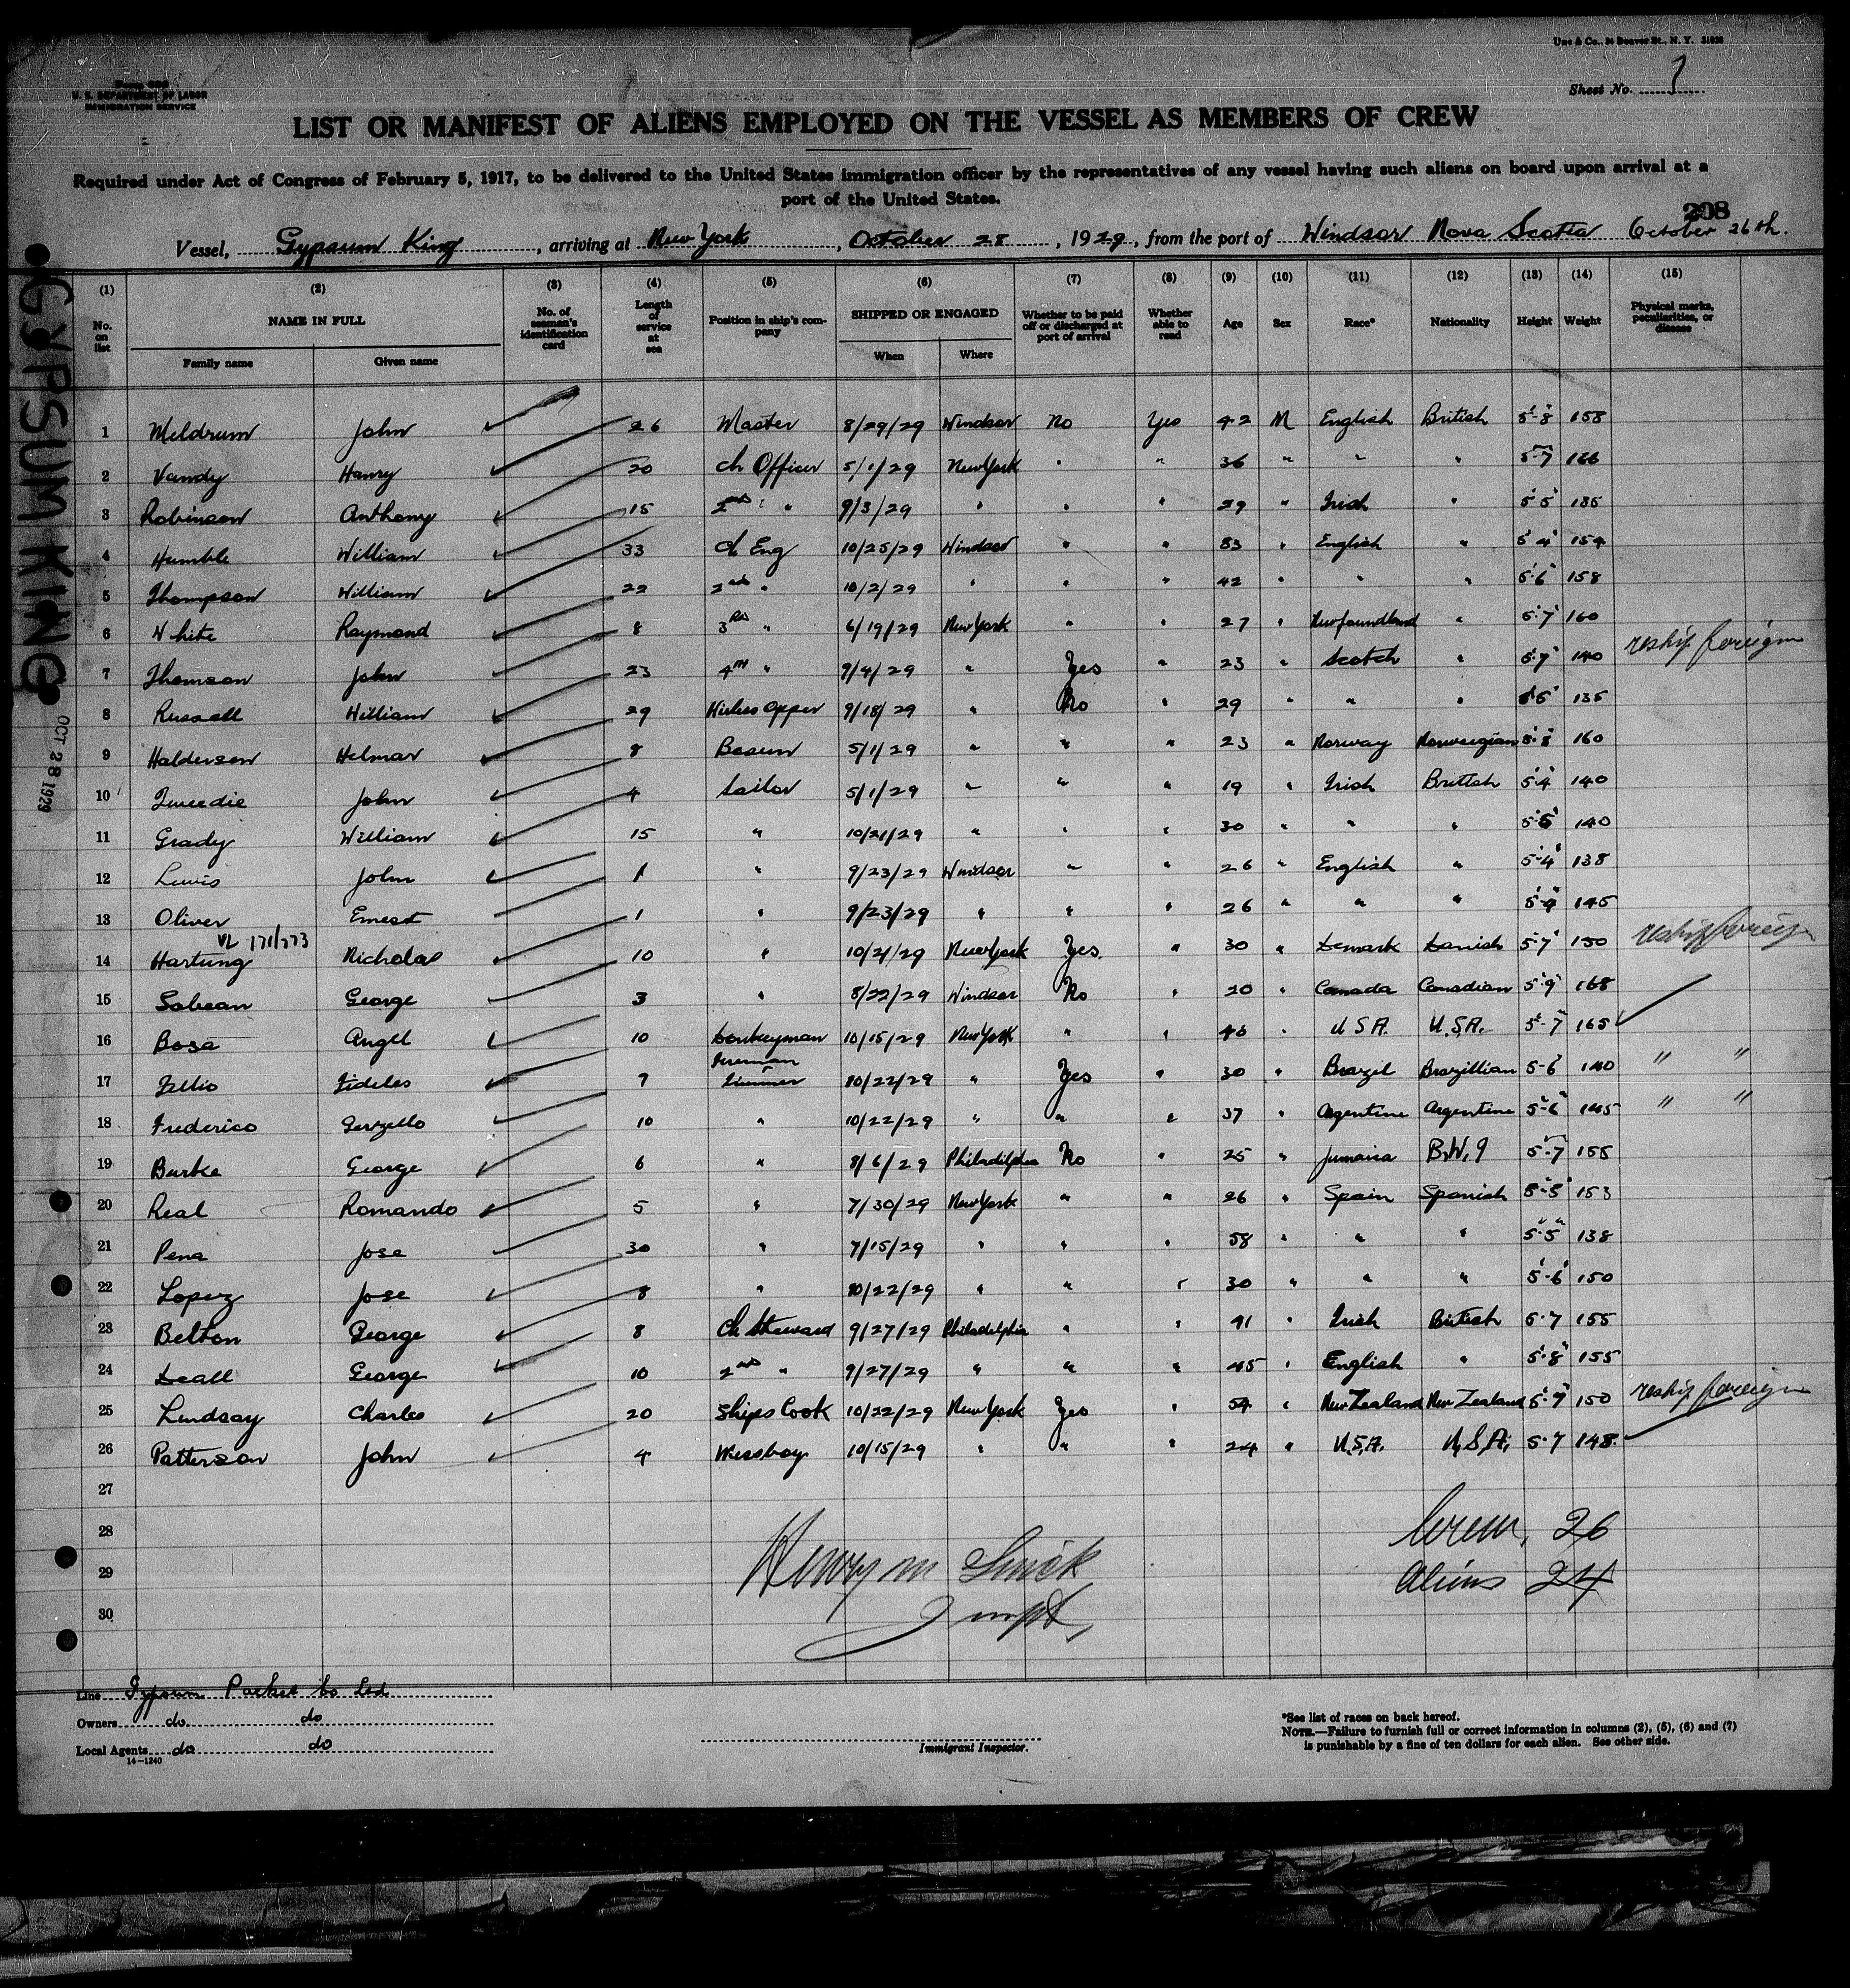 Une & Co., 24 Beaver St., N. Y. 31928
Form 680
U. S. DEPARTMENT OF LABOR
IMMIGRATION SERVICE
Sheet No. 1
LIST OR MANIFEST OF ALIENS EMPLOYED ON THE VESSEL AS MEMBERS OF CREW
Required under Act of Congress of February 5, 1917, to be delivered to the United States immigration officer by the representatives of any vessel having such aliens on board upon arrival at a
port of the United States.
208
Vessel, Gypsum King, arriving at New York, October 28, 1929, from the port of Windsor Nova Scotia October 26th.
GYPSUM KING
OCT 28 1929
(1) (2) (3) (4) (5) (6) (7) (8) (9) (10) (11) (12) (13) (14) (15)
No. on list NAME IN FULL Family name Given name No. of seaman's identification card Length of service at sea Position in ship's company SHIPPED OR ENGAGED When Where Whether to be paid off or discharged at port of arrival Whether able to read Age Sex Race* Nationality Height Weight Physical marks, peculiarities, or disease
1 Meldrum John 26 Master 8/29/29 Windsor No Yes 42 M English British 5'-8" 158
2 Vandy Henry 20 Ch Officer 5/1/29 New York " " 36 " " " 5-7 166
3 Robinson Anthony 15 2nd " 9/3/29 " " " 29 " Irish " 5'5" 135
4 Humble William 33 Ch Eng 10/25/29 Windsor " " 53 " English " 5'4" 154
5 Thompson William 22 2nd " 10/2/29 " " " 42 " " " 5'6" 158
6 White Raymond 8 3rd " 6/19/29 New York " " 27 " Newfoundland " 5'7" 160
7 Thomson John 23 4th " 9/4/29 " Yes " 23 " Scotch " 5'7" 140 reship foreign
8 Russell William 29 Wireless Opper 9/18/29 " No " 29 " " " 5'5" 135
9 Haldersen Helmar 8 Bosun 5/1/29 " " " 23 " Norway Norwegian 5'8" 160
10 Tweedie John 4 Sailor 5/1/29 " " " 19 " Irish British 5'4" 140
11 Grady William 15 " 10/21/29 " " " 30 " " " 5'6" 140
12 Lewis John 1 " 9/23/29 Windsor " " 26 " English " 5'-4" 138
13 Oliver Ernest 1 " 9/23/29 " " " 26 " " " 5'-9" 145
VL 171/273
14 Hartung Nicholas 10 " 10/21/29 New York Yes " 30 " Demark Danish 5'7" 150 reship foreign
15 Sabean George 3 " 8/22/29 Windsor No " 20 " Canada Canadian 5'9" 168
16 Bosa Angel 10 Donkeyman 10/15/29 New York " " 46 " U.S.A. U.S.A. 5'-7" 165
17 Fidelis 7 Fireman 10/22/29 " Yes " 30 " Brazil Brazillian 5-6 140 " "
18 Frederico 10 " 10/22/29 " " " 37 " Argentine Argentine 5'-6" 145 " "
19 Burke George 6 " 8/6/29 Philadelphia No " 25 " Jumaica B.W.I 5'-7" 155
20 Real Romando 5 " 7/30/29 New York " " 26 " Spain Spanish 5'-5" 153
21 Pena Jose 30 " 7/15/29 " " " 58 " " " 5'5" 138
22 Lopez Jose 8 " 10/22/29 " " " 30 " " " 5'-6" 150
23 Belton George 8 Ch Steward 9/27/29 Philadelphia " " 41 " Irish British 5-7 155
24 Deall George 10 2nd " 9/27/29 " " " 45 " English " 5'-8" 155
25 Lindsay Charles 20 Ships Cook 10/22/29 New York Yes " 54 " New Zealand New Zealand 5'-7" 150 reship foreign
26 Patterson John 4 Messboy 10/15/29 " " " 24 " U.S.A. U.S.A. 5-7 148
27
28 Crew, 26
29 Henry M Aliens 24
30
Line Gypsum Packet Co Ltd
Owners do do
Local Agents do do
14—1240
Immigrant Inspector.
*See list of races on back hereof.
NOTE.—Failure to furnish full or correct information in columns (2), (5), (6) and (7)
is punishable by a fine of ten dollars for each alien. See other side.